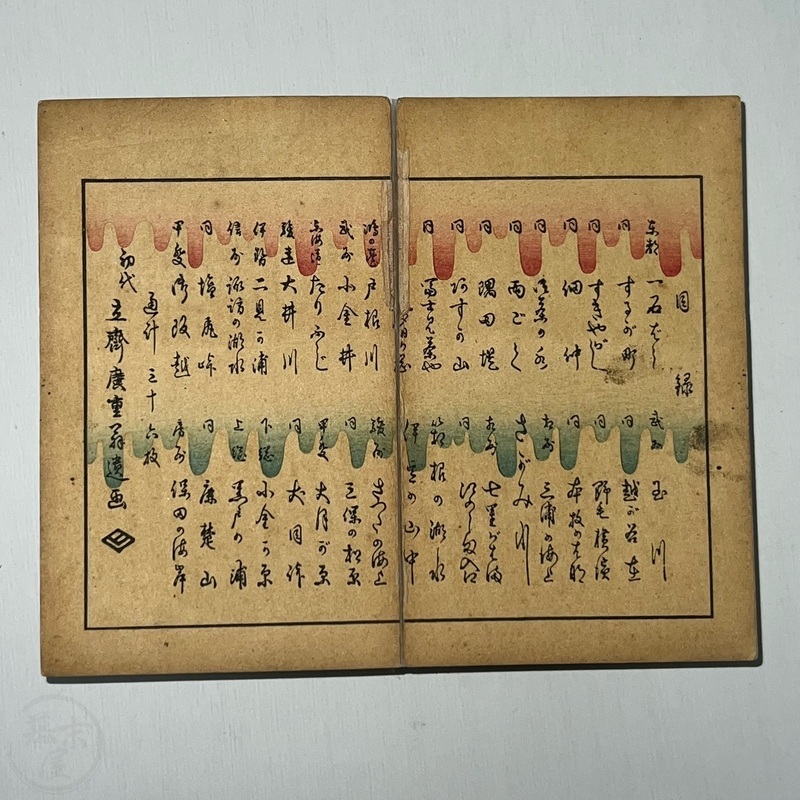 目録
東都 一石ばし
同 するが町
同 すきやがし
同 佃沖
同 御茶の水
同 両ごく
同 隅田堤
同 あすかの山
同 冨士見茶や
夕日の岡
鴻の臺 戸根川
武州 小金井
東海道 たりふじ
駿遠 大井川
伊勢 二見か浦
信州 諏訪の湖水
同 塩尻峠
甲斐 御坂越
武州 玉川
同 越が谷在
同 野毛横濱
同 本牧のはな
相州 三浦の海上
さがみ川
相州 七里がはま
同 江のしま入口
箱根の湖水
伊豆の山中
駿州 さつたの海上
同 三保の松原
甲斐 大月が原
同 犬目峠
下総 小金か原
上総 黒戸の浦
同 鹿楚山
房州 保田の海岸
通計 三十六枚
初代 立齋廣重翁遺画